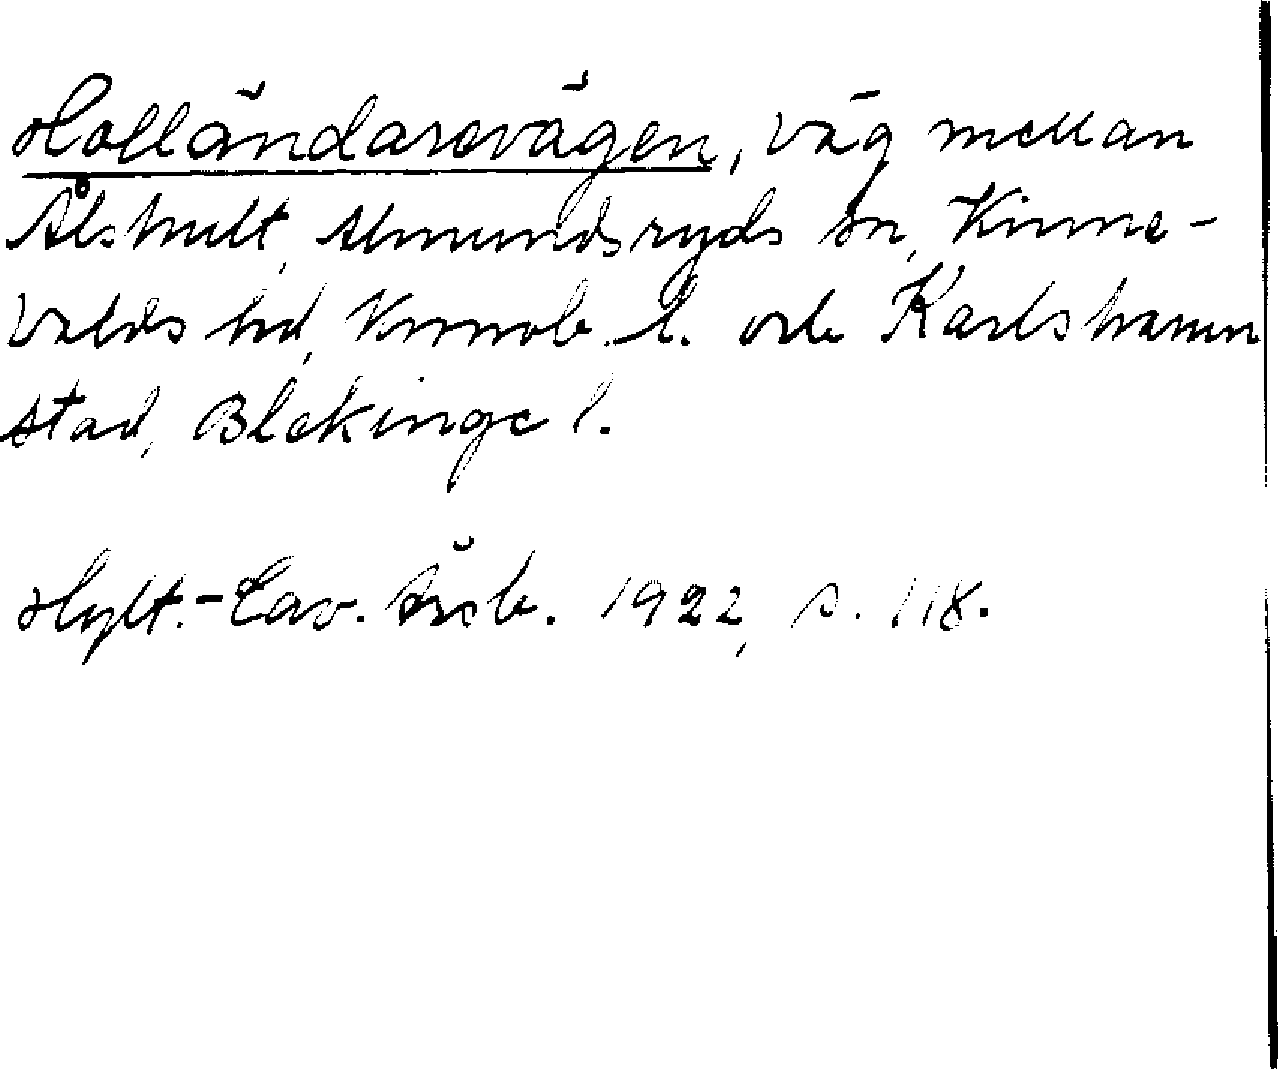 Holländarevägen, väg mellan
Ålshult, Almundsryds sn, Kinne-
valds hd, Kronob. l. och Karlshamn
stad, Blekinge l.
Hylt.-Cav. Årsb. 1922, s. 118.